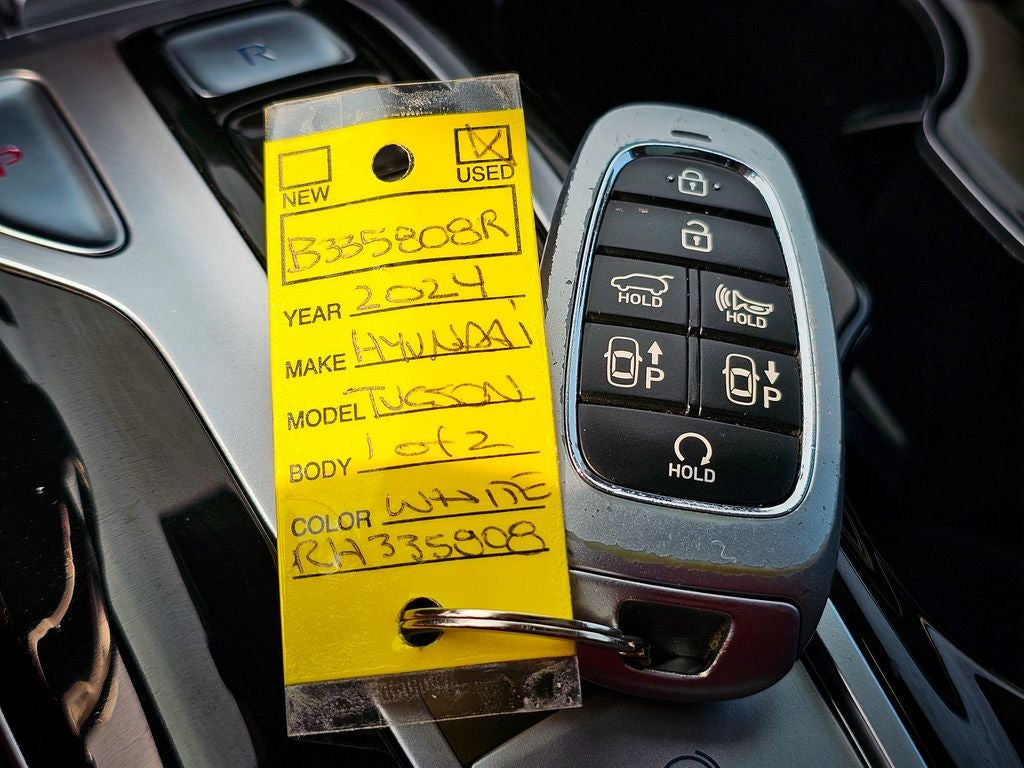 R
P
NEW
USED
B335808R
YEAR 2024
MAKE HYUNDAI
MODEL TUCSON
BODY 1 of 2
COLOR WHITE
RH335908
HOLD
HOLD
P
P
HOLD